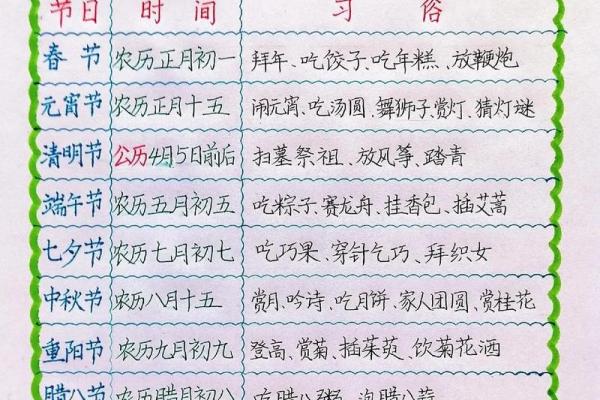 节日 时间 习俗
春节 农历正月初一 拜年、吃饺子、吃年糕、放鞭炮
元宵节 农历正月十五 闹元宵、吃汤圆、舞狮子、赏灯、猜灯谜
清明节 公历4月5日前后 扫墓祭祖、放风筝、踏青
端午节 农历五月初五 吃粽子、赛龙舟、挂香包、插艾蒿
七夕节 农历七月初七 吃巧果、穿针乞巧、拜织女
中秋节 农历八月十五 赏月、吟诗、吃月饼、家人团圆、赏桂花
重阳节 农历九月初九 登高、赏菊、插茱萸、饮菊花酒
腊八节 农历腊月初八 吃腊八粥、泡腊八蒜